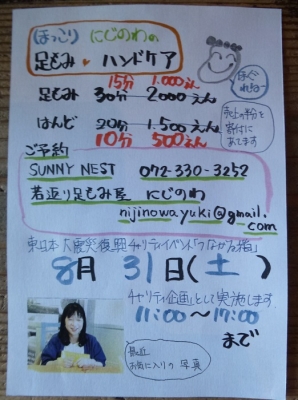 ほっこり にじのわの
足もみ♥ハンドケア
15分 1.000えん
足もみ 30分 2000えん
はんど 20分 1.500えん
10分 500えん
ほぐれるー
売上の一部を
寄付に
あてます
ご予約
SUNNY NEST 072-330-3252
若返り足もみ屋 にじのわ
nijinowayuki@gmail.
com
東日本大震災復興チャリティイベント「つながる指」
8月31日(土)
チャリティ企画」として実施します
11:00〜17:00
まで
最近
お気に入りの写真